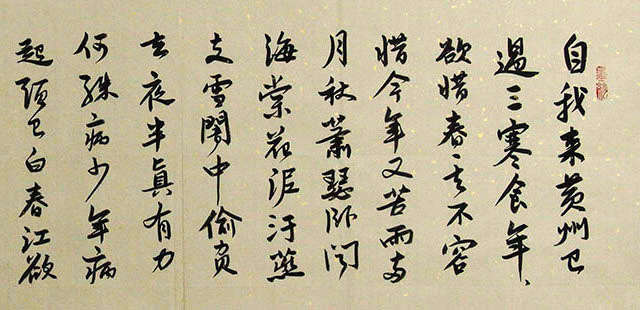 自我来黄州已
過三寒食年、
欲惜春、去不容
惜今年又苦雨兩
月秋蕭瑟卧聞
海棠花泥汙燕
支雪闇中偷負
去夜半真有力
何殊病少年病
起頭已白春江欲